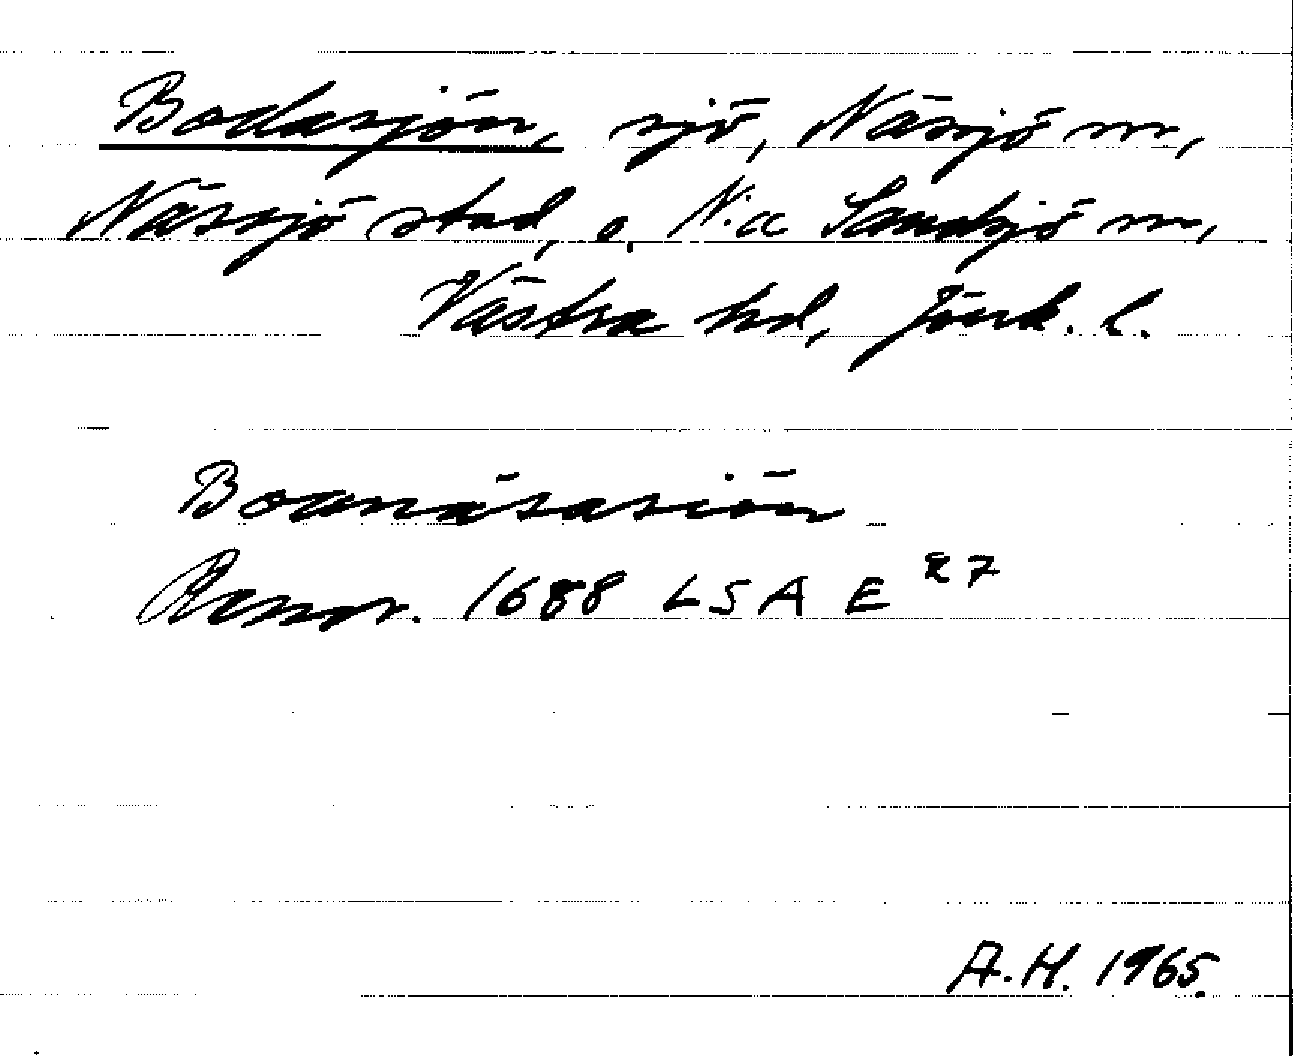 Bodasjön, sjö, Nässjö sn,
Nässjö stad, o. N:a Sandsjö sn,
Västra hd, Jönk. l.
Boanäsasiön
Ransr. 1688 LSA E 27
A.H. 1965.